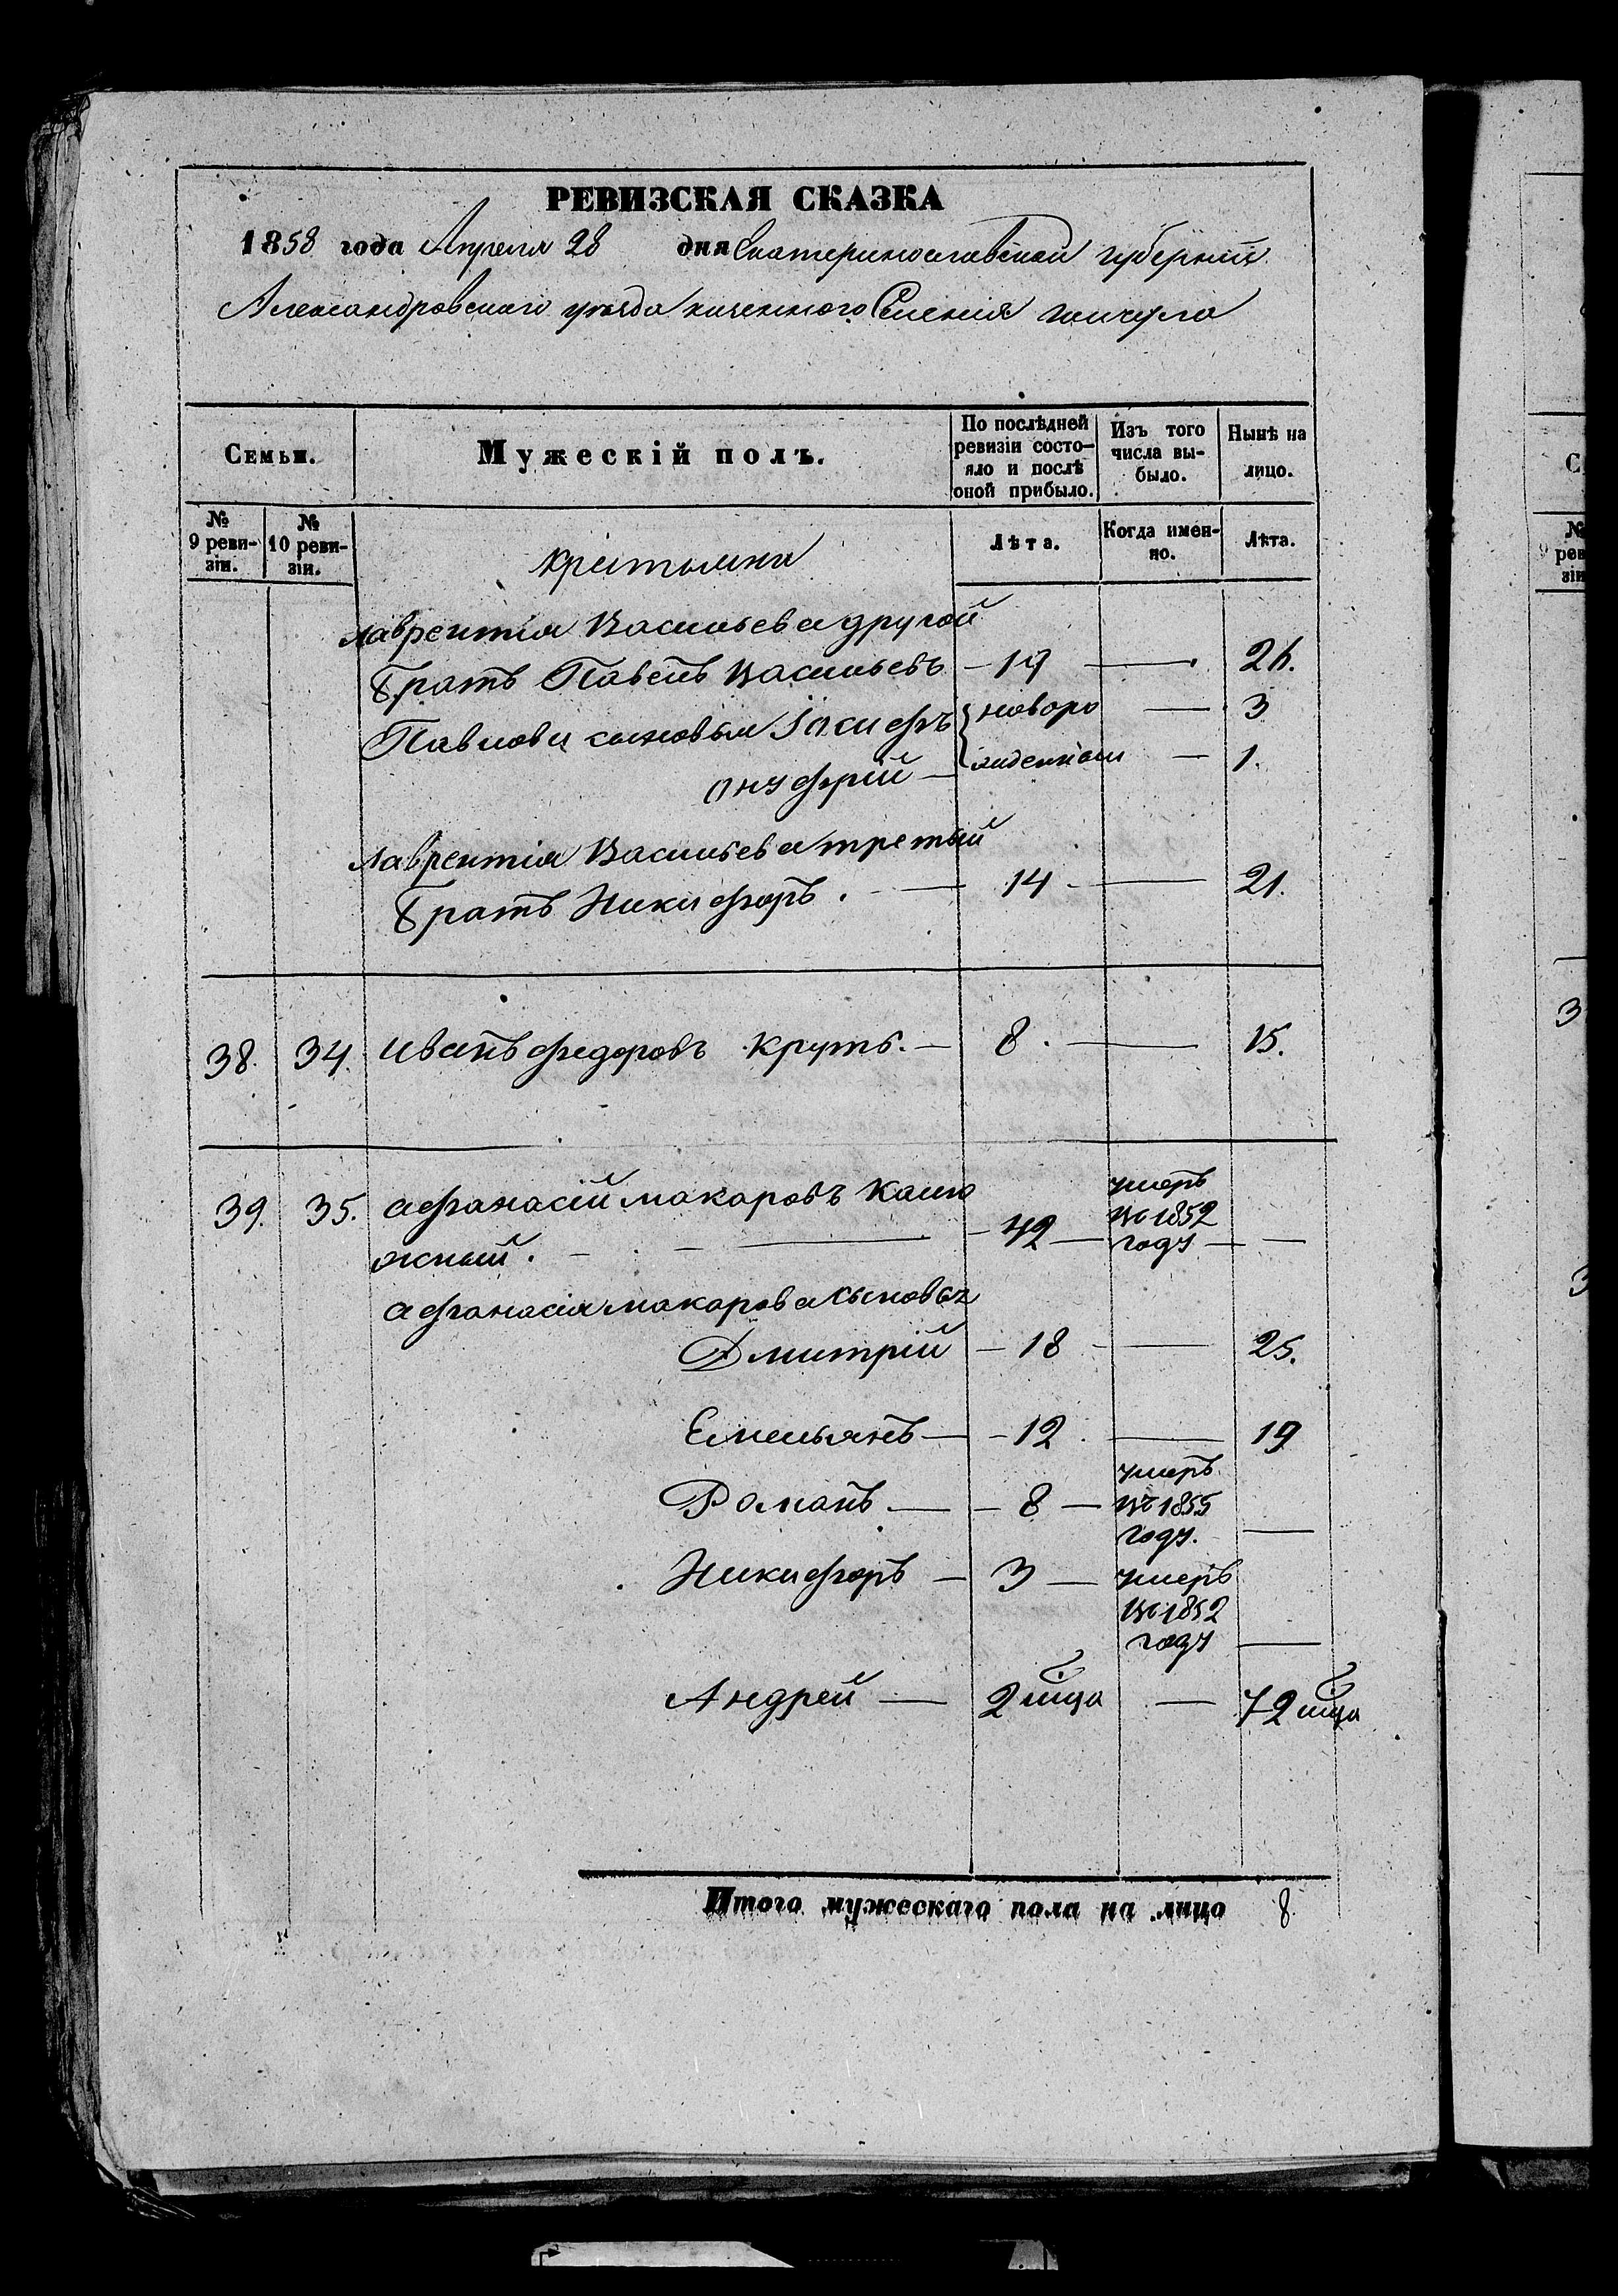 РЕВИЗСКАЯ СКАЗКА
1858 года Апреля 28 дня Екатеринославской губерніи
Александровскаго уѣзда казенного Селенія
Семьи.
Мужескій полъ.
По послѣдней ревизіи состояло и послѣ оной прибыло.
Изъ того числа выбыло.
Нынѣ на лицо.
№ 9 ревизіи.
№ 10 ревизіи.
крестьяне
Лѣта.
Когда именно.
Лѣта.
Лаврентія Васильева другой
Братъ Павелъ Васильевъ — 19 — 26.
Павловы сыновья Іосифъ новоро — 3
Онуфрій — жденныи — 1.
Лаврентія Васильева третьий
Братъ Никифоръ. — 14 — 21.
38. 34. Иванъ Федоровъ Крутъ. — 8. — 15.
39. 35. Афанасій Макаровъ Калю
жный. — 42 — умеръ въ 1852 году —
Афанасія Макарова сыновья
Дмитрій — 18 — 25.
Емельянъ — 12 — 19
Романъ — 8 — умеръ въ 1855 году. —
Никифоръ — 3 — умеръ въ 1852 году —
Андрей — 2 мца — 7 2 мца
Итого мужескаго пола на лицо 8
С
№
9 рев
зін
3
3